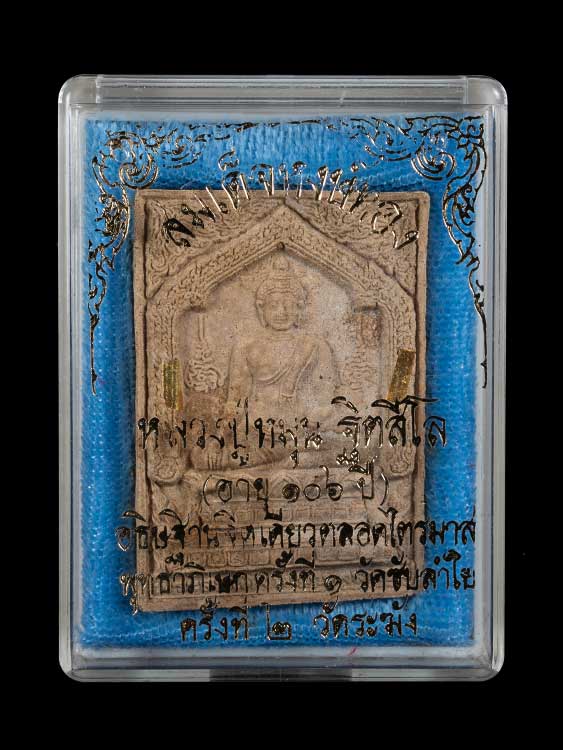 สมเด็จทางแท่อง
หลวงปู่หมุน ฐิตสีโล
(อายุ ๑๐๖ ปี)
อธิษฐานจิตเดี่ยวตลอดไตรมาส
พุทธาภิเษกครั้งที่ ๑ วัดซับลำใย
ครั้งที่ ๒ วัดระฆัง